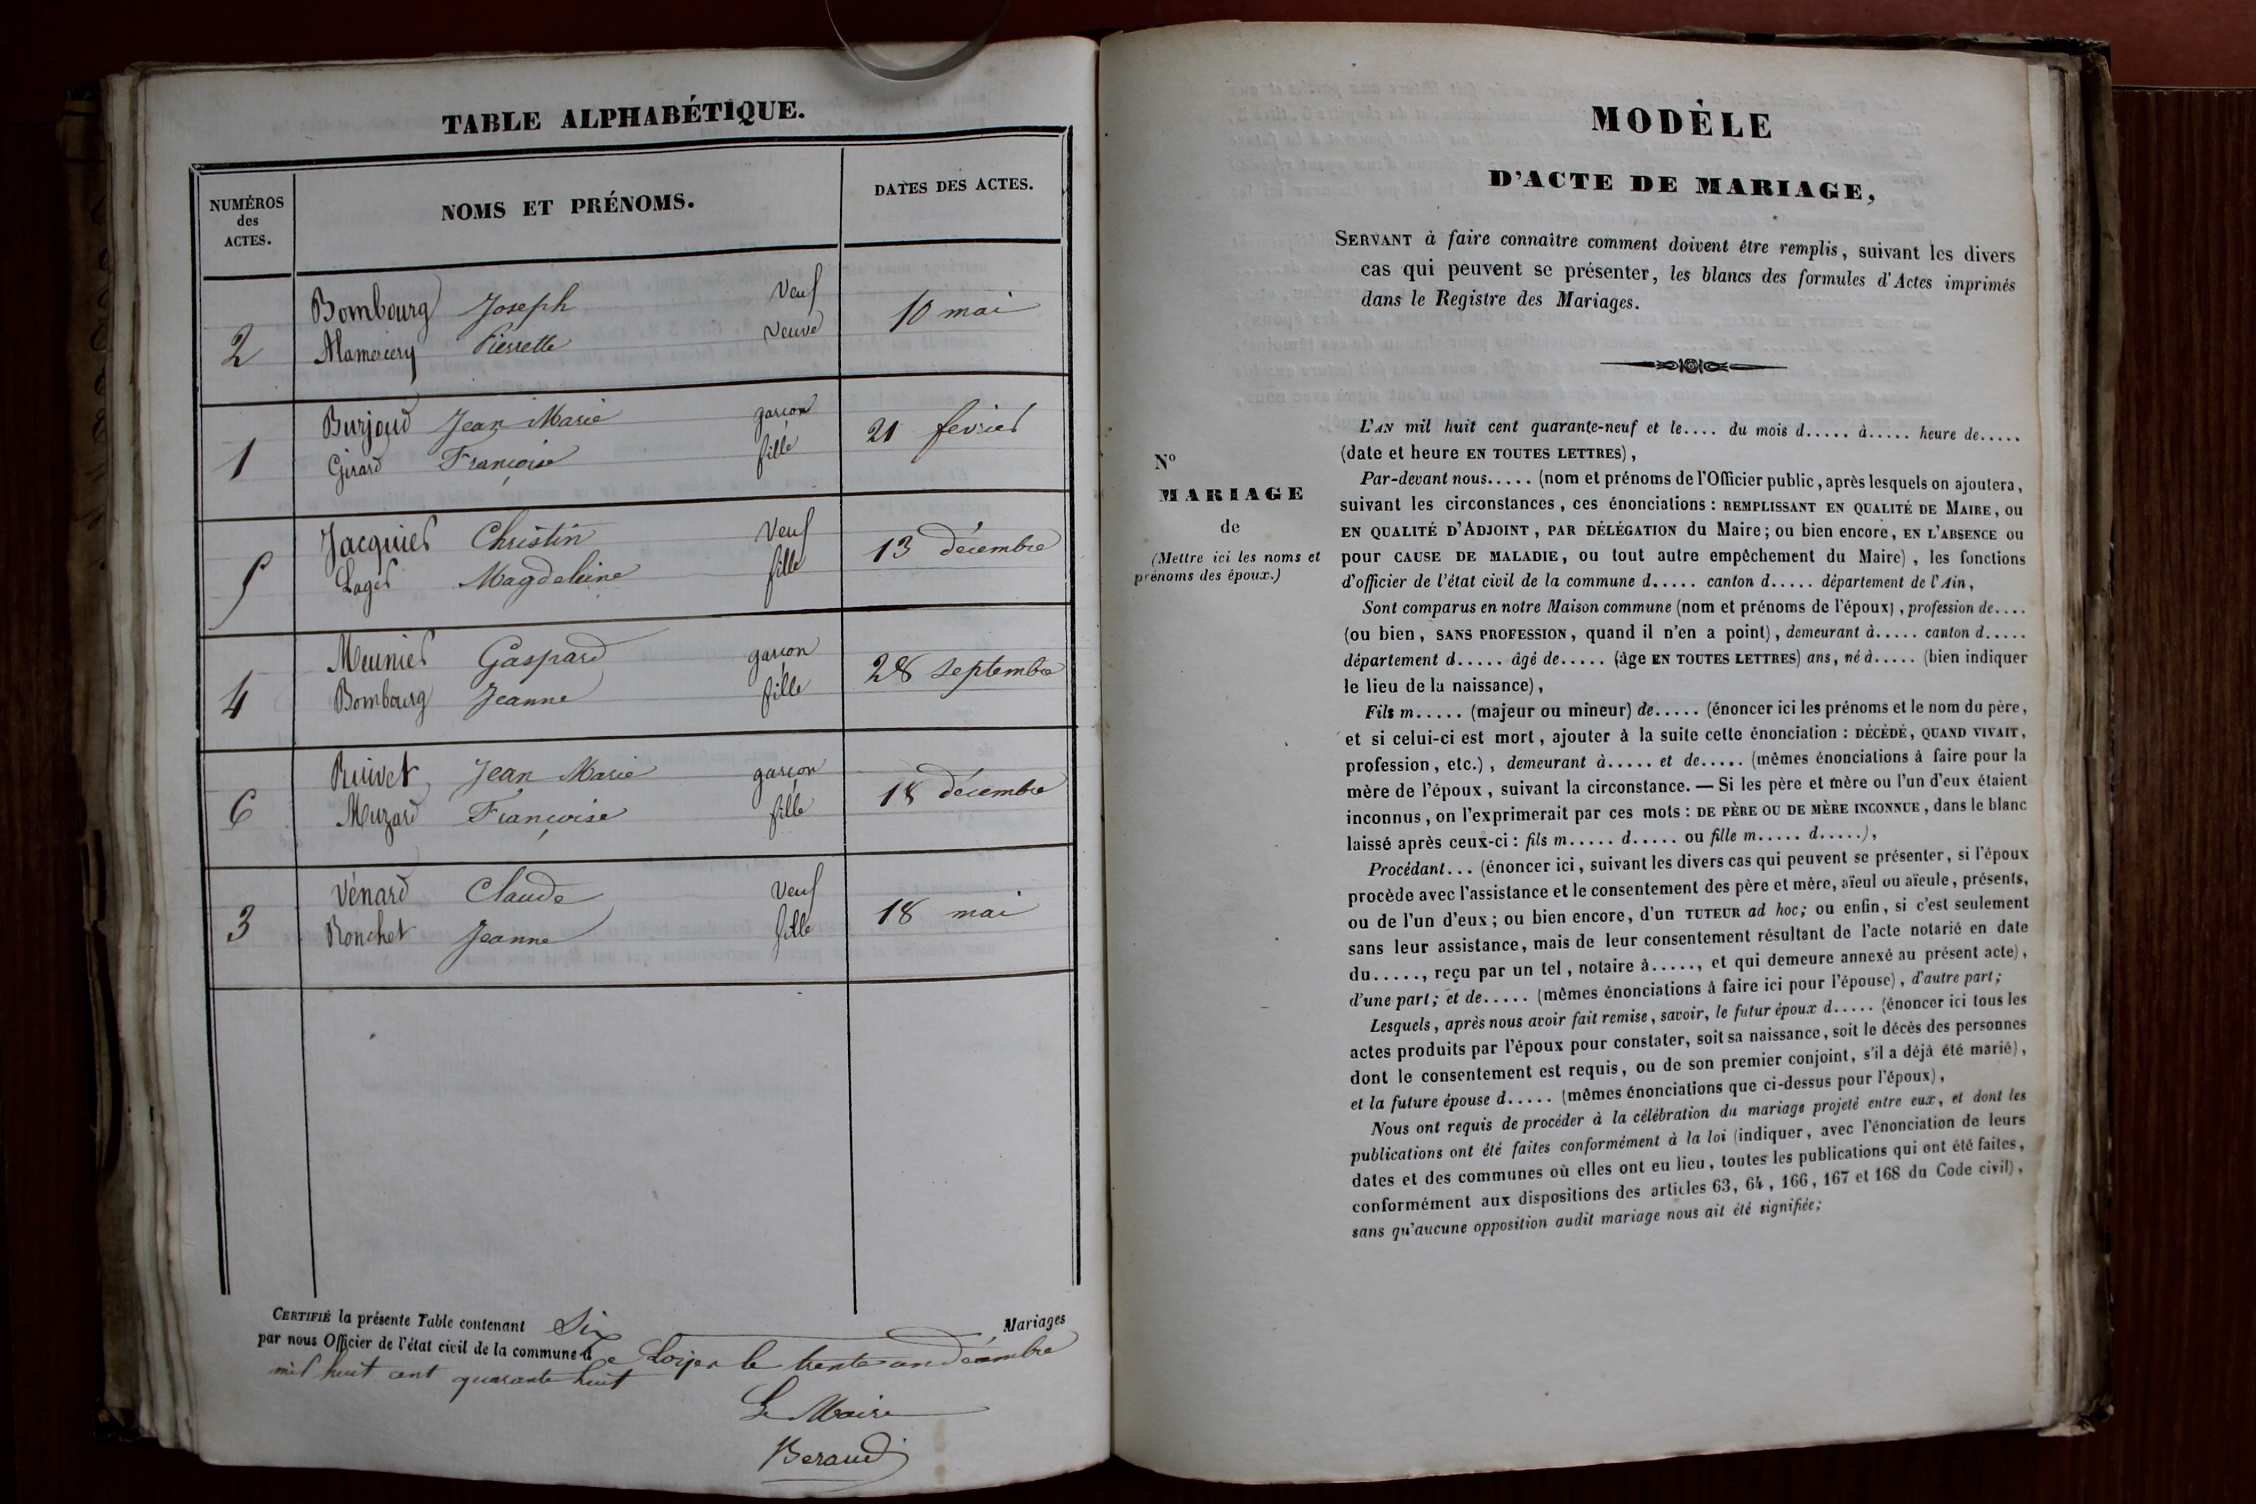 TABLE ALPHABÉTIQUE.
NUMÉROS
des
ACTES.
NOMS ET PRÉNOMS.
DATES DES ACTES.
Bombourg Joseph Veuf
2 Mamessery Pierrette Veuve 10 mai
Burjoud Jean Marie garçon
1 Girard Françoise fille 21 fevrier
Jacquier Christin Veuf
5 Lager Magdeleine fille 13 décembre
Meunier Gaspard garçon
4 Bombourg Jeanne fille 28 septembre
Ruivet Jean Marie garçon
6 Muzard Françoise fille 18 décembre
Vénard Claude Veuf
3 Ronchet Jeanne fille 18 mai
CERTIFIÉ la présente Table contenant Six Mariages
par nous Officier de l'état civil de la commune de le trente un décembre
mil huit cent quarante huit
Le Maire
Beraud
MODÈLE
D'ACTE DE MARIAGE,
SERVANT à faire connaître comment doivent être remplis, suivant les divers
cas qui peuvent se présenter, les blancs des formules d'Actes imprimés
dans le Registre des Mariages.
N°
MARIAGE
de
(Mettre ici les noms et
prénoms des époux.)
L'AN mil huit cent quarante-neuf et le.... du mois d..... à..... heure de.....
(date et heure EN TOUTES LETTRES),
Par-devant nous..... (nom et prénoms de l'Officier public, après lesquels on ajoutera,
suivant les circonstances, ces énonciations : REMPLISSANT EN QUALITÉ DE MAIRE, ou
EN QUALITÉ D'ADJOINT, PAR DÉLÉGATION du Maire; ou bien encore, EN L'ABSENCE ou
pour CAUSE DE MALADIE, ou tout autre empêchement du Maire), les fonctions
d'officier de l'état civil de la commune d..... canton d..... département de l'Ain,
Sont comparus en notre Maison commune (nom et prénoms de l'époux), profession de....
(ou bien, SANS PROFESSION, quand il n'en a point), demeurant à..... canton d.....
département d..... âgé de..... (âge EN TOUTES LETTRES) ans, né à..... (bien indiquer
le lieu de la naissance),
Fils m..... (majeur ou mineur) de..... (énoncer ici les prénoms et le nom du père,
et si celui-ci est mort, ajouter à la suite cette énonciation : DÉCÉDÉ, QUAND VIVAIT,
profession, etc.), demeurant à..... et de..... (mêmes énonciations à faire pour la
mère de l'époux, suivant la circonstance. — Si les père et mère ou l'un d'eux étaient
inconnus, on l'exprimerait par ces mots : DE PÈRE OU DE MÈRE INCONNUE, dans le blanc
laissé après ceux-ci : fils m..... d..... ou fille m..... d.....),
Procédant... (énoncer ici, suivant les divers cas qui peuvent se présenter, si l'époux
procède avec l'assistance et le consentement des père et mère, aïeul ou aïeule, présents,
ou de l'un d'eux; ou bien encore, d'un TUTEUR ad hoc; ou enfin, si c'est seulement
sans leur assistance, mais de leur consentement résultant de l'acte notarié en date
du....., reçu par un tel, notaire à....., et qui demeure annexé au présent acte),
d'une part; et de..... (mêmes énonciations à faire ici pour l'épouse), d'autre part;
Lesquels, après nous avoir fait remise, savoir, le futur époux d..... (énoncer ici tous les
actes produits par l'époux pour constater, soit sa naissance, soit le décès des personnes
dont le consentement est requis, ou de son premier conjoint, s'il a déjà été marié),
et la future épouse d..... (mêmes énonciations que ci-dessus pour l'époux),
Nous ont requis de procéder à la célébration du mariage projeté entre eux, et dont les
publications ont été faites conformément à la loi (indiquer, avec l'énonciation de leurs
dates et des communes où elles ont eu lieu, toutes les publications qui ont été faites,
conformément aux dispositions des articles 63, 64, 166, 167 et 168 du Code civil),
sans qu'aucune opposition audit mariage nous ait été signifiée;